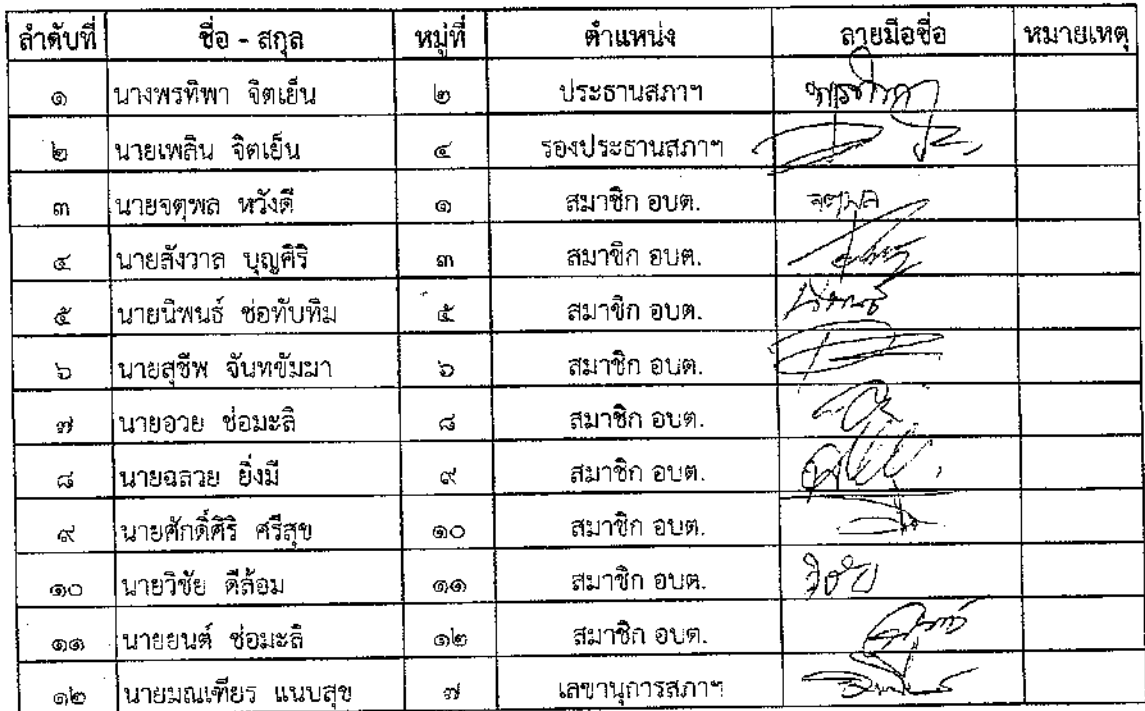 ลำดับที่ ชื่อ - สกุล หมู่ที่ ตำแหน่ง ลายมือชื่อ หมายเหตุ
๑ นางพรทิพา จิตเย็น ๒ ประธานสภาฯ
๒ นายเพลิน จิตเย็น ๔ รองประธานสภาฯ
๓ นายจตุพล หวังดี ๑ สมาชิก อบต. จตุพล
๔ นายสังวาล บุญศิริ ๓ สมาชิก อบต.
๕ นายนิพนธ์ ช่อทับทิม ๕ สมาชิก อบต.
๖ นายสุชีพ จันทขัมมา ๖ สมาชิก อบต.
๗ นายอวย ช่อมะลิ ๘ สมาชิก อบต.
๘ นายฉลวย ยิ่งมี ๙ สมาชิก อบต.
๙ นายศักดิ์ศิริ ศรีสุข ๑๐ สมาชิก อบต.
๑๐ นายวิชัย ดีล้อม ๑๑ สมาชิก อบต. วิชัย
๑๑ นายยนต์ ช่อมะลิ ๑๒ สมาชิก อบต.
๑๒ นายมณเฑียร แนบสุข ๗ เลขานุการสภาฯ